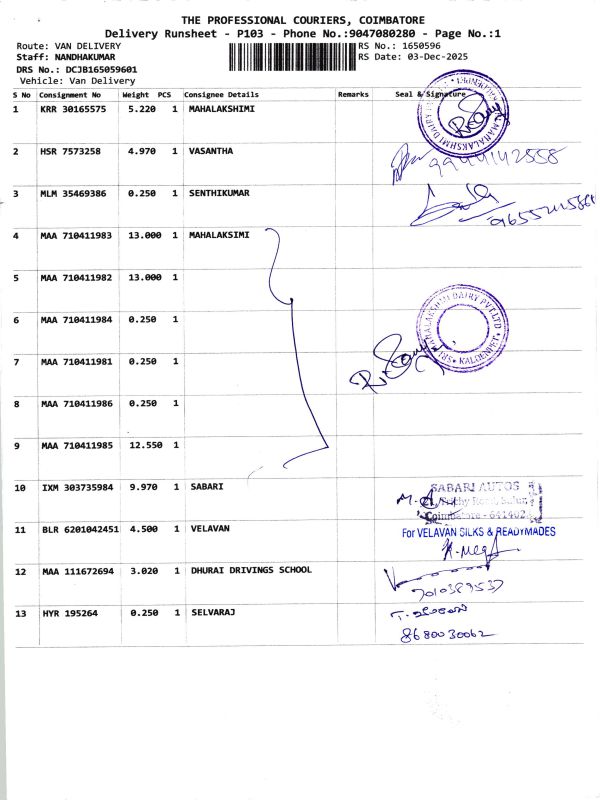 THE PROFESSIONAL COURIERS, COIMBATORE
Delivery Runsheet - P103 - Phone No.:9047080280 - Page No.:1
Route: VAN DELIVERY RS No.: 1650596
Staff: NANDHAKUMAR RS Date: 03-Dec-2025
DRS No.: DCJB165059601
Vehicle: Van Delivery
S No Consignment No Weight PCS Consignee Details Remarks Seal & Signature
1 KRR 30165575 5.220 1 MAHALAKSHIMI
2 HSR 7573258 4.970 1 VASANTHA
3 MLM 35469386 0.250 1 SENTHIKUMAR
4 MAA 710411983 13.000 1 MAHALAKSIMI
5 MAA 710411982 13.000 1
6 MAA 710411984 0.250 1
MAHALAKSHMI DAIRY PVT LTD
KALDENPET
7 MAA 710411981 0.250 1
8 MAA 710411986 0.250 1
9 MAA 710411985 12.550 1
10 IXM 303735984 9.970 1 SABARI SABARI AUTOS
Coimbatore - 641402
11 BLR 6201042451 4.500 1 VELAVAN For VELAVAN SILKS & READYMADES
12 MAA 111672694 3.020 1 DHURAI DRIVINGS SCHOOL
7010389537
13 HYR 195264 0.250 1 SELVARAJ
8680030062